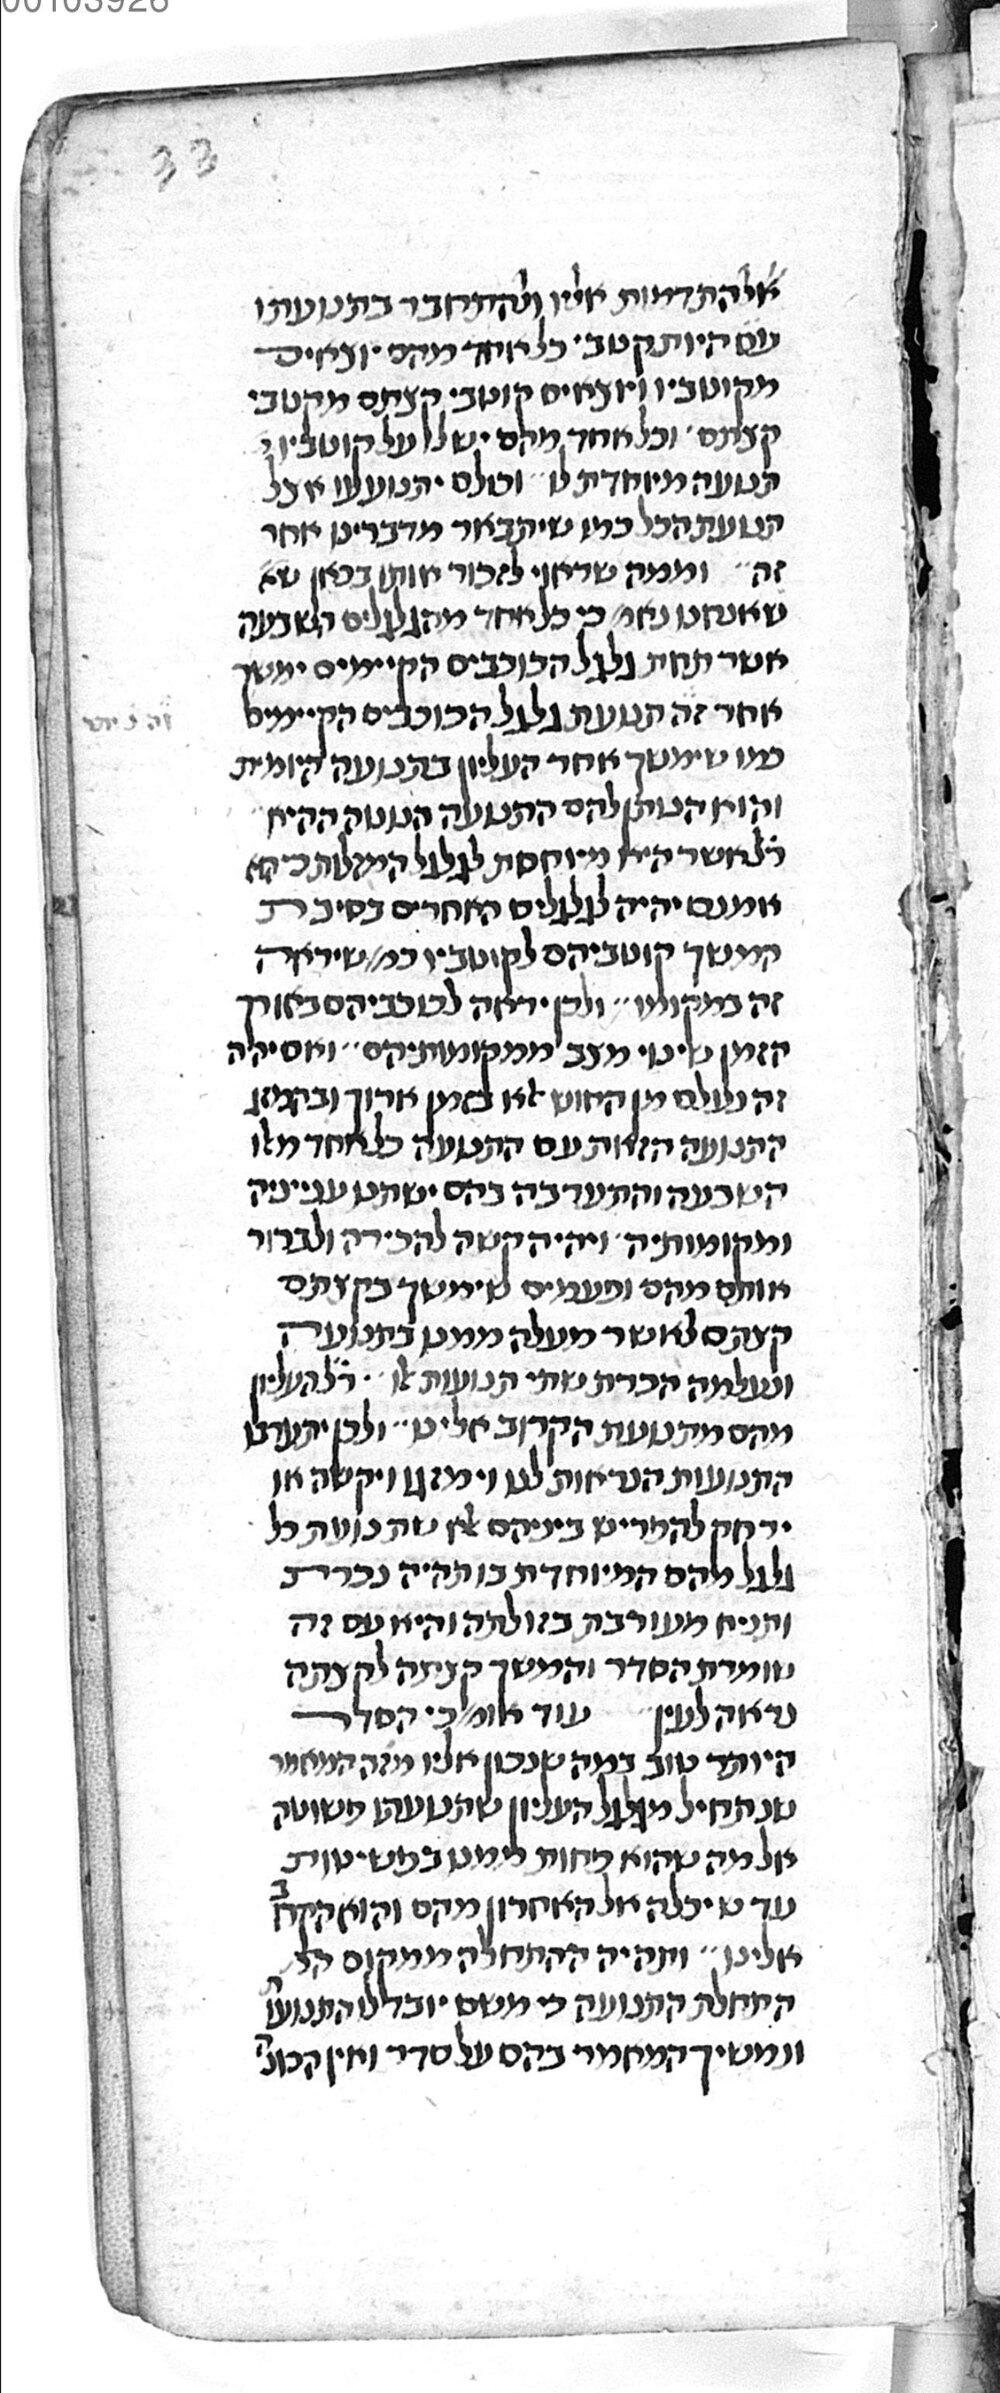 00103926
33
אל התדמות אליו ולהתחבר בתנועתו
עם היות קטבי כל אחד מהם יוצאים
מקוטביו ויוצאים קוטבי קצתם מקטבי
קצתם וכל אחד מהם יש לו על קוטביו
תנועה מיוחדת לו וכולם יתנועעו אצל
תנועת הכל כמו שיתבאר מדברינו אחר
זה וממה שראוי לזכור אותו בכאן שא
שאנחנו נאמ' כי כל אחד מהגלגלים השבעה
אשר תחת גלגל הכוכבים הקיימים ימשך
אחר זה תנועת גלגל הכוכבים הקיימים
כמו שימשך אחר העליון בתנועה היומית
והוא הנותן להם התנועה הנוטה ההיא
ר"ל אשר היא מיוחסת לגלגל המזלות כי הא
אמנם יהיה לגלגלים האחרים בסיבת
המשך קוטביהם לקוטביו כמ' שיראה
זה במקומו ולכן יראה לכוכביהם באורך
הזמן שינוי מצב ממקומותיהם ואם יהיה
זה נעלם מן החוש לא בזמן ארוך ובהמזג
התנועה הזאת עם התנועה כל אחד מאו
השבעה והתערבה בהם ישתנו ענייניה
ומקומותיה ויהיה קשה להכירה ולברור
אותם מהם ופעמים שימשך בקצתם
קצתם לאשר מעלה ממנו בתנועה
ונעלמה הכרת שתי תנועות אלו ר"ל העליון
מהם מתנועת הקרוב אלינו ולכן יתערבו
התנועות הנראות לנו וימזגו ויקשה או
ירחק להפריש ביניהם לא שתנועת כל
גלגל מהם המיוחדת בו תהיה נכרת
ותניח מעורבת בזולתה והיא עם זה
שומרת הסדר והמשך קצתה לקצתה
נראה לעין עוד אומ' כי הסדר
היותר טוב במה שנכון אליו מזה המאמר
שנתחיל מגלגל העליון שתנועתו פשוטה
אל מה שהוא פחות ממנו בפשיטות
עד שיכלה אל האחרון מהם והוא הקרוב
אלינו ותהיה ההתחלה ממקום הת
התחלת התנועה כי משם יובדלו התנועות
ונמשיך המאמר בהם על סדר ואין הכונה